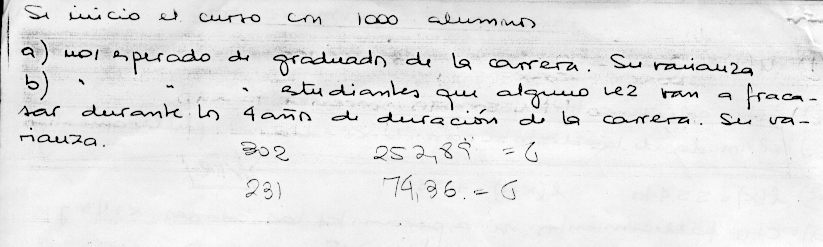 Se inicio el curso con 1000 alumnos
a) no1 esperado de graduado de la carrera. Su varianza
b) " " " estudiantes que alguno vez van a fraca-
sar durante los 4 años de duración de la carrera. Su va-
rianza.
302 252,89 = σ
231 74,36. = σ